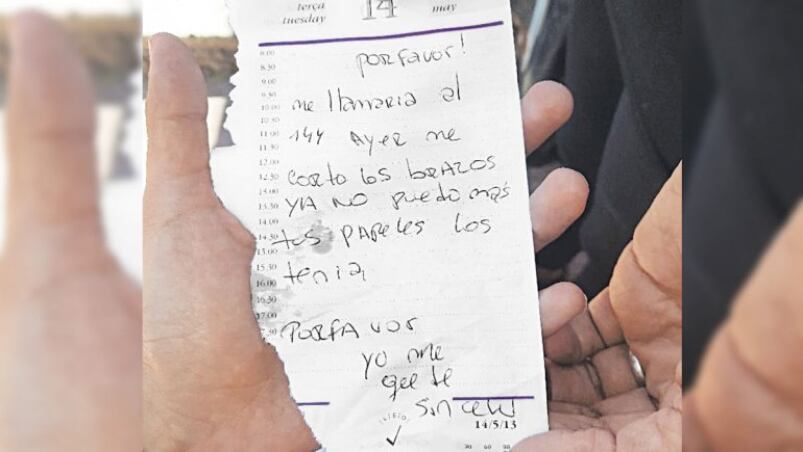 terça 14 may
tuesday
8.00
8.30
9.00
9.30
10.00
10.30
11.00
11.30
12.00
12.30
13.30
14.00
14.30
15.00
15.30
16.00
16.30
17.00
porfavor!
me llamaria al
144 AYER me
corto los brazos
YA NO puedo mas
PAPeles los
tenia
PORFAVOR
yo me
que de
sin celu
14/5/13